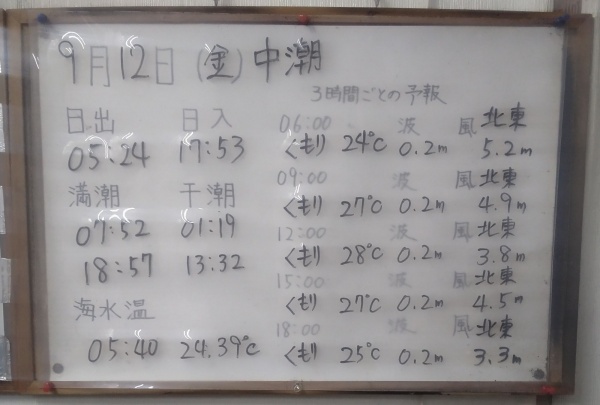 9月12日(金)中潮
3時間ごとの予報
日出 日入
05:24 17:53
満潮 干潮
07:52 01:19
18:57 13:32
海水温
05:40 24.39℃
06:00 波 風 北東
くもり 24℃ 0.2m 5.2m
09:00 波 風 北東
くもり 27℃ 0.2m 4.9m
12:00 波 風 北東
くもり 28℃ 0.2m 3.8m
15:00 波 風 北東
くもり 27℃ 0.2m 4.5m
18:00 波 風 北東
くもり 25℃ 0.2m 3.3m